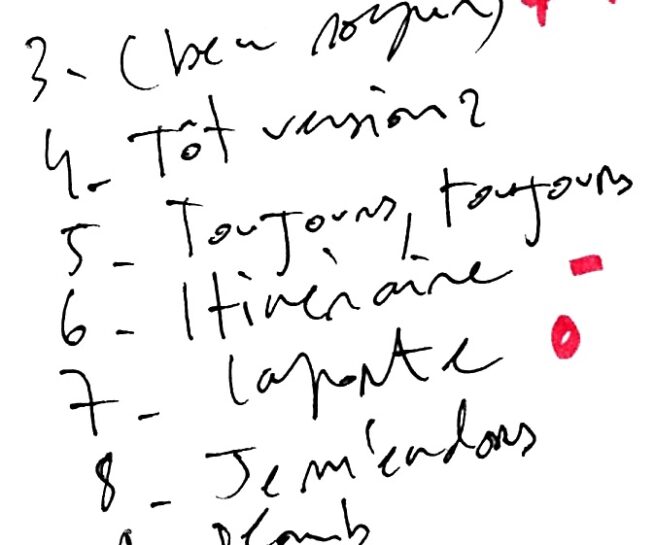 3- (beau
4- Tôt version 2
5- Toujours, toujours
6- Itinéraire -
7- Laporte o
8- Je m'endors
Plomb